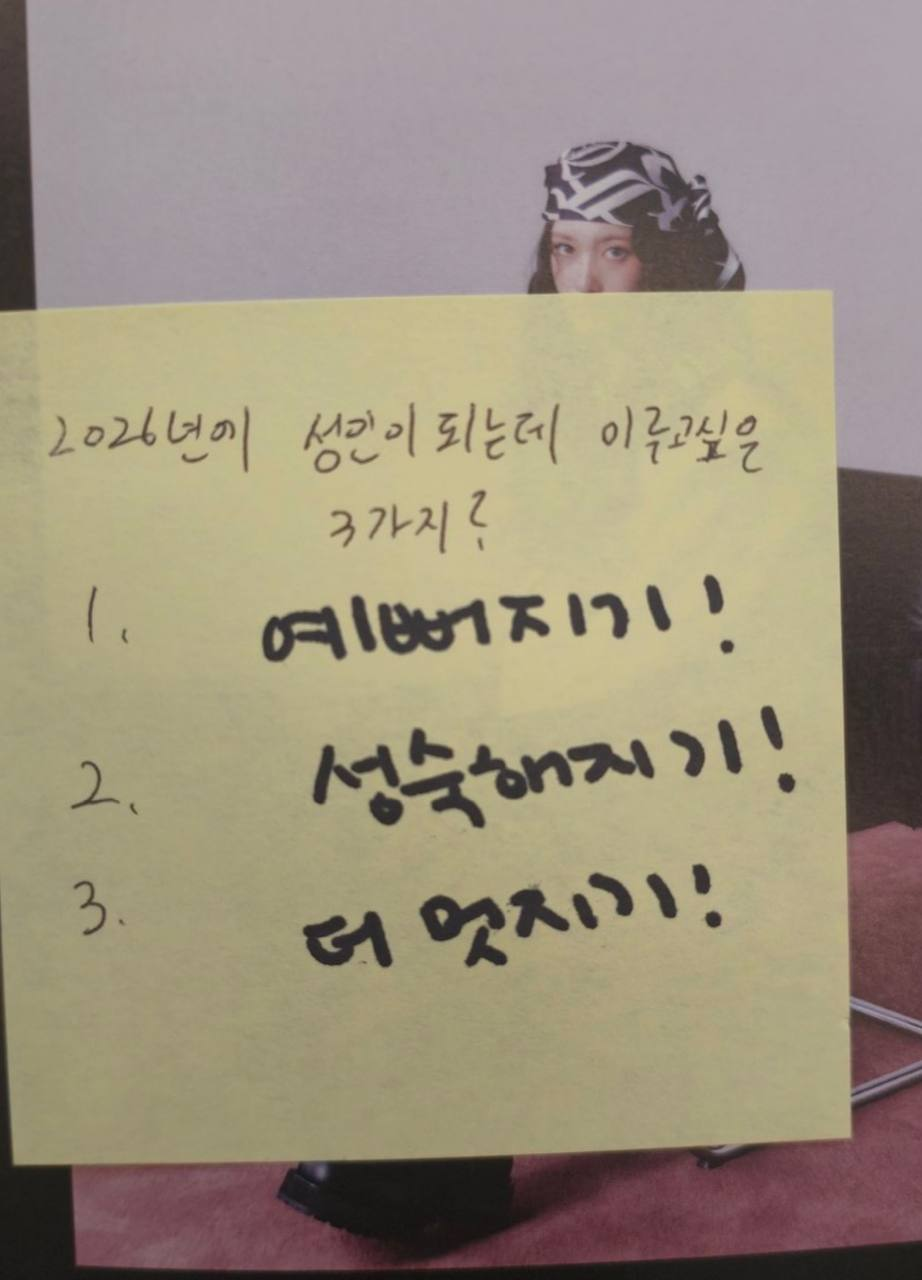 2026년에 성인이 되는데 이루고싶은
3가지?
1. 예뻐지기!
2. 성숙해지기!
3. 더 멋지기!